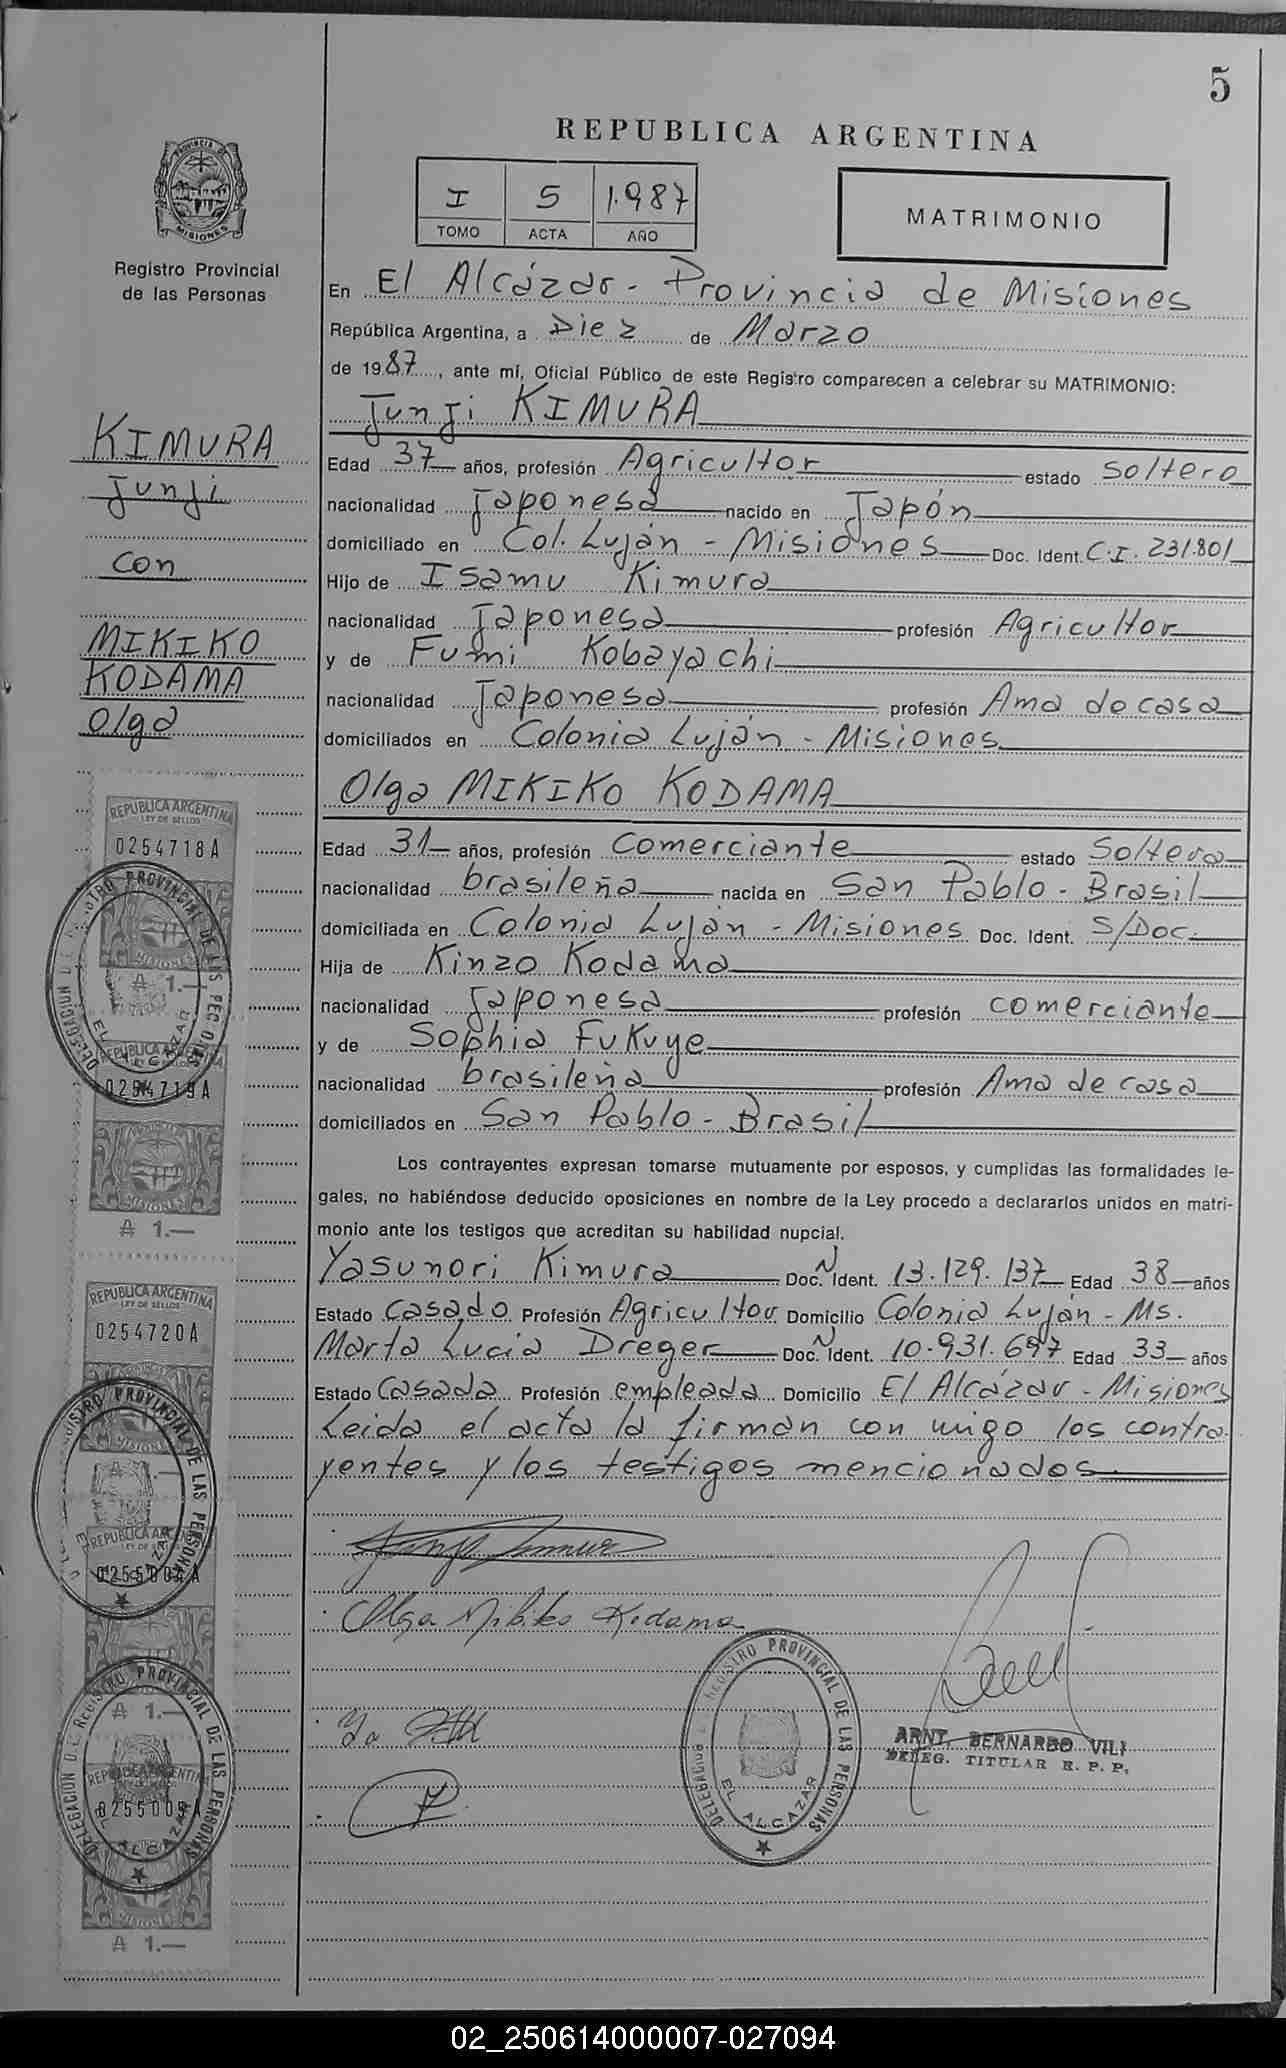 5
REPUBLICA ARGENTINA
I 5 1.987
TOMO ACTA AÑO
MATRIMONIO
PROVINCIA DE MISIONES
Registro Provincial
de las Personas
En El Alcázar - Provincia de Misiones
República Argentina, a Diez de Marzo
de 1987, ante mí, Oficial Público de este Registro comparecen a celebrar su MATRIMONIO:
Junji KIMURA
Edad 37 años, profesión Agricultor estado soltero
nacionalidad Japonesa nacido en Japón
domiciliado en Col. Luján - Misiones Doc. Ident. C.I. 231.801
Hijo de Isamu Kimura
nacionalidad Japonesa profesión Agricultor
y de Fumi Kobayachi
nacionalidad Japonesa profesión Ama de casa
domiciliados en Colonia Luján - Misiones
Olga MIKIKO KODAMA
Edad 31 años, profesión Comerciante estado Soltera
nacionalidad brasileña nacida en San Pablo - Brasil
domiciliada en Colonia Luján - Misiones Doc. Ident. S/Doc.
Hija de Kinzo Kodama
nacionalidad Japonesa profesión comerciante
y de Sophia Fukuye
nacionalidad brasileña profesión Ama de casa
domiciliados en San Pablo - Brasil
Los contrayentes expresan tomarse mutuamente por esposos, y cumplidas las formalidades le-
gales, no habiéndose deducido oposiciones en nombre de la Ley procedo a declararlos unidos en matri-
monio ante los testigos que acreditan su habilidad nupcial.
Yasunori Kimura Doc. Ident. 13.129.137 Edad 38 años
Estado Casado Profesión Agricultor Domicilio Colonia Luján - Ms.
Marta Lucia Dreger Doc. Ident. 10.931.697 Edad 33 años
Estado Casada Profesión empleada Domicilio El Alcázar - Misiones
Leida el acta la firman con migo los contra
yentes y los testigos mencionados.
Olga Mikiko Kodama
DELEGACION REGISTRO PROVINCIAL DE LAS PERSONAS
EL ALCAZAR
ARNT. BERNARDO VILI
DELEG. TITULAR R. P. P.
KIMURA
Junji
con
MIKIKO
KODAMA
Olga
REPUBLICA ARGENTINA
LEY DE SELLOS
0254718A
₳ 1.—
REPUBLICA ARGENTINA
0254719A
MISIONES
₳ 1.—
REPUBLICA ARGENTINA
LEY DE SELLOS
0254720A
MISIONES
REPUBLICA ARGENTINA
₳ 1.—
DELEGACION D.L. REGISTRO PROVINCIAL DE LAS PERSONAS
EL ALCAZAR
REPUBLICA ARGENTINA
MISIONES
₳ 1.—
02_250614000007-027094